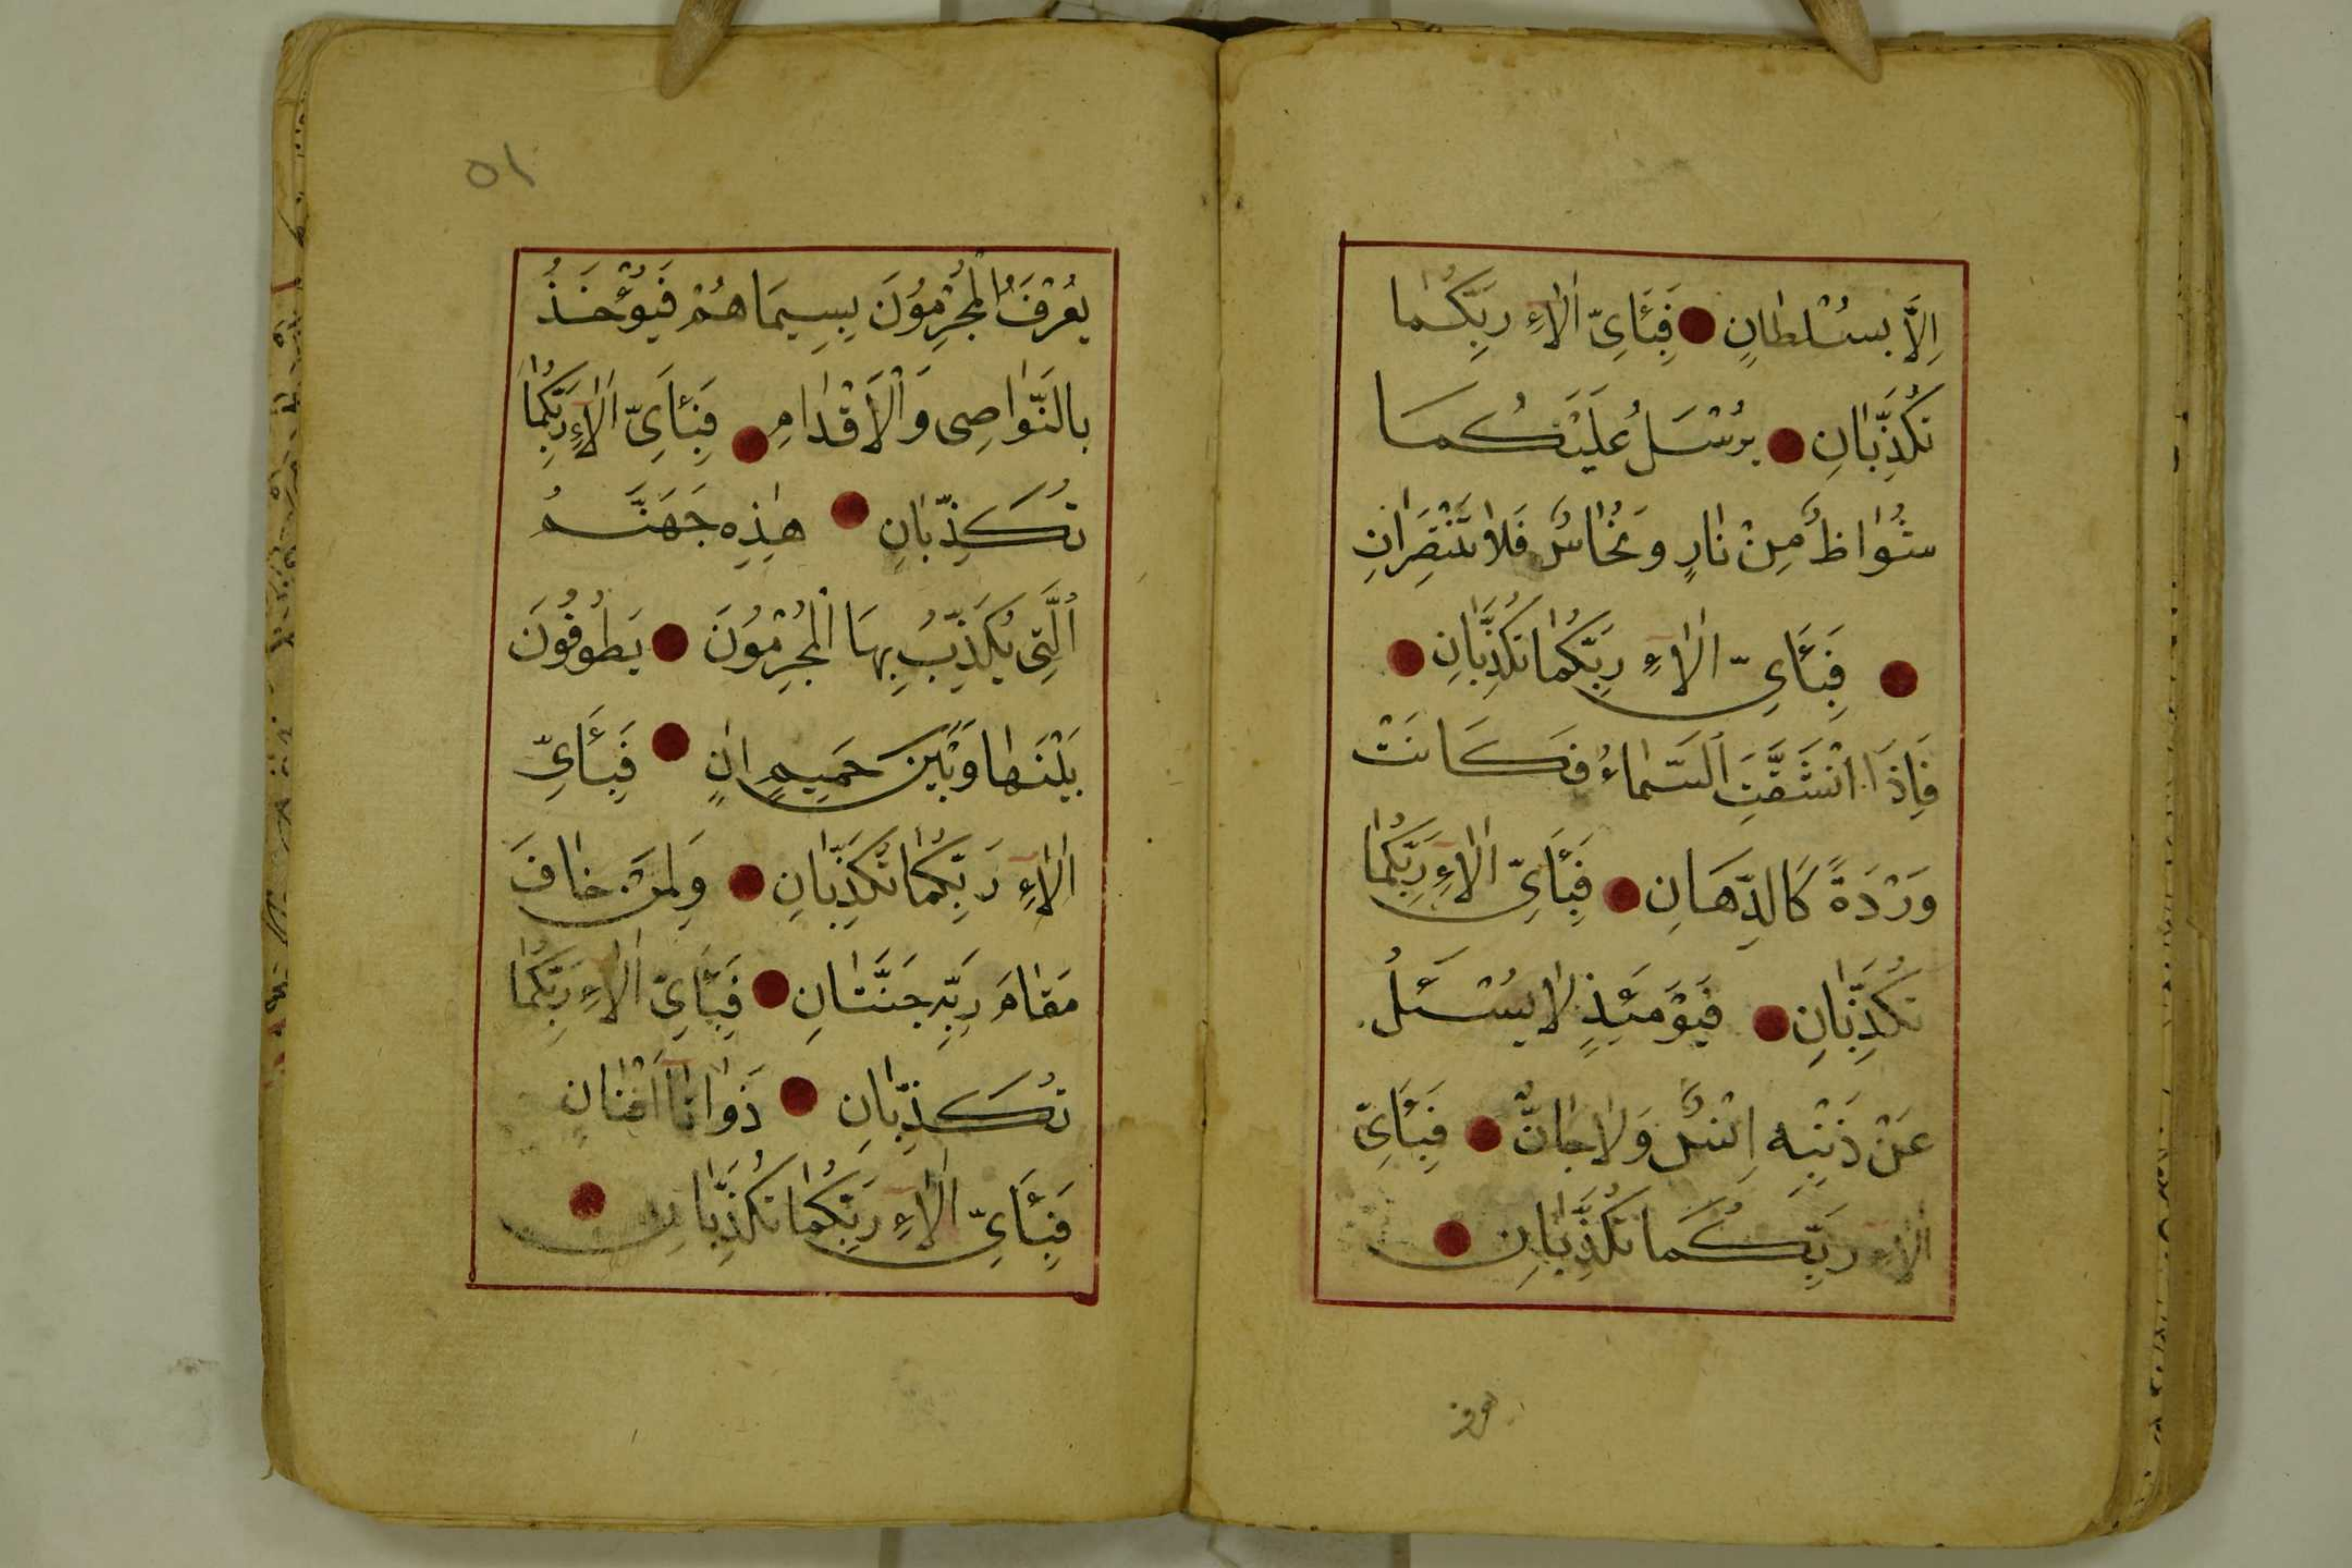 اِلَّا بِسُلْطَانٍ فَبِئَايِّ اٰلَاءِ رَبِّكُمَا
تُكَذِّبَانِ يُرْسَلُ عَلَيْكُمَا
شُوَاظٌ مِنْ نَارٍ وَنُحَاسٌ فَلَا تَنْتَصِرَانِ
فَبِئَايِّ اٰلَاءِ رَبِّكُمَا تُكَذِّبَانِ
فَاِذَا انْشَقَّتِ السَّمَاءُ فَكَانَتْ
وَرْدَةً كَالدِّهَانِ فَبِئَايِّ اٰلَاءِ رَبِّكُمَا
تُكَذِّبَانِ فَيَوْمَئِذٍ لَا يُسْئَلُ
عَنْ ذَنْبِهِ اِنْسٌ وَلَا جَانٌّ فَبِئَايِّ
اٰلَاءِ رَبِّكُمَا تُكَذِّبَانِ
٥١
يُعْرَفُ الْمُجْرِمُونَ بِسِيمَاهُمْ فَيُؤْخَذُ
بِالنَّوَاصِى وَالْاَقْدَامِ فَبِئَايِّ اٰلَاءِ رَبِّكُمَا
تُكَذِّبَانِ هٰذِهِ جَهَنَّمُ
الَّتِى يُكَذِّبُ بِهَا الْمُجْرِمُونَ يَطُوفُونَ
بَيْنَهَا وَبَيْنَ حَمِيمٍ اٰنٍ فَبِئَايِّ
اٰلَاءِ رَبِّكُمَا تُكَذِّبَانِ وَلِمَنْ خَافَ
مَقَامَ رَبِّهِ جَنَّتَانِ فَبِئَايِّ اٰلَاءِ رَبِّكُمَا
تُكَذِّبَانِ ذَوَاتَا اَفْنَانٍ
فَبِئَايِّ اٰلَاءِ رَبِّكُمَا تُكَذِّبَانِ